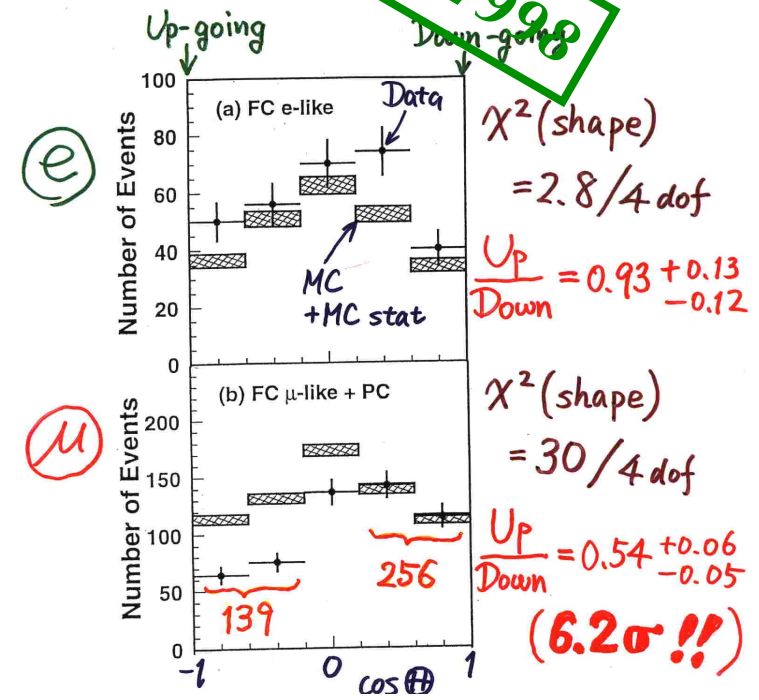 1998
Up-going
Down-going
e
(a) FC e-like
Data
Number of Events
100
80
60
40
20
0
MC
+MC stat
χ²(shape)
=2.8/4 dof
Up/Down = 0.93 +0.13 -0.12
μ
(b) FC μ-like + PC
Number of Events
200
150
100
50
0
139
256
χ²(shape)
=30/4 dof
Up/Down = 0.54 +0.06 -0.05
(6.2σ!!)
-1
0
1
cosΘ